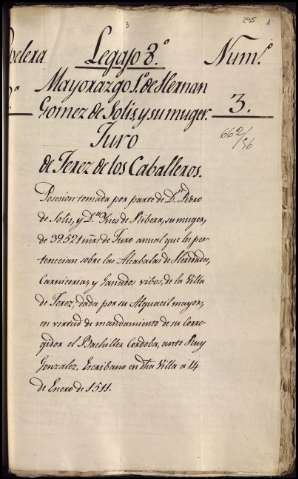 3
295
Legajo 8.º Num.º
Mayorazgo 1.º de Hernan
Gomez de Solis, y su muger. 3.
Juro
662/56
de Jerez de los Caballeros.
Posesion tomada por parte de D.n Pedro
de Solis, y D.ª Ynes de Ribera, su muger,
de 39.521 mrs. de Juro anual que les per-
tenecian sobre las Alcabalas de Heredades,
Carnicerias, y Ganados vivos, de la Villa
de Jerez, dada por su Alguacil mayor,
en virtud de mandamiento de su Corre-
gidor el Bachiller Cordoba, ante Ruy
Gonzalez, Escribano en dha Villa a 14
de Enero de 1511.